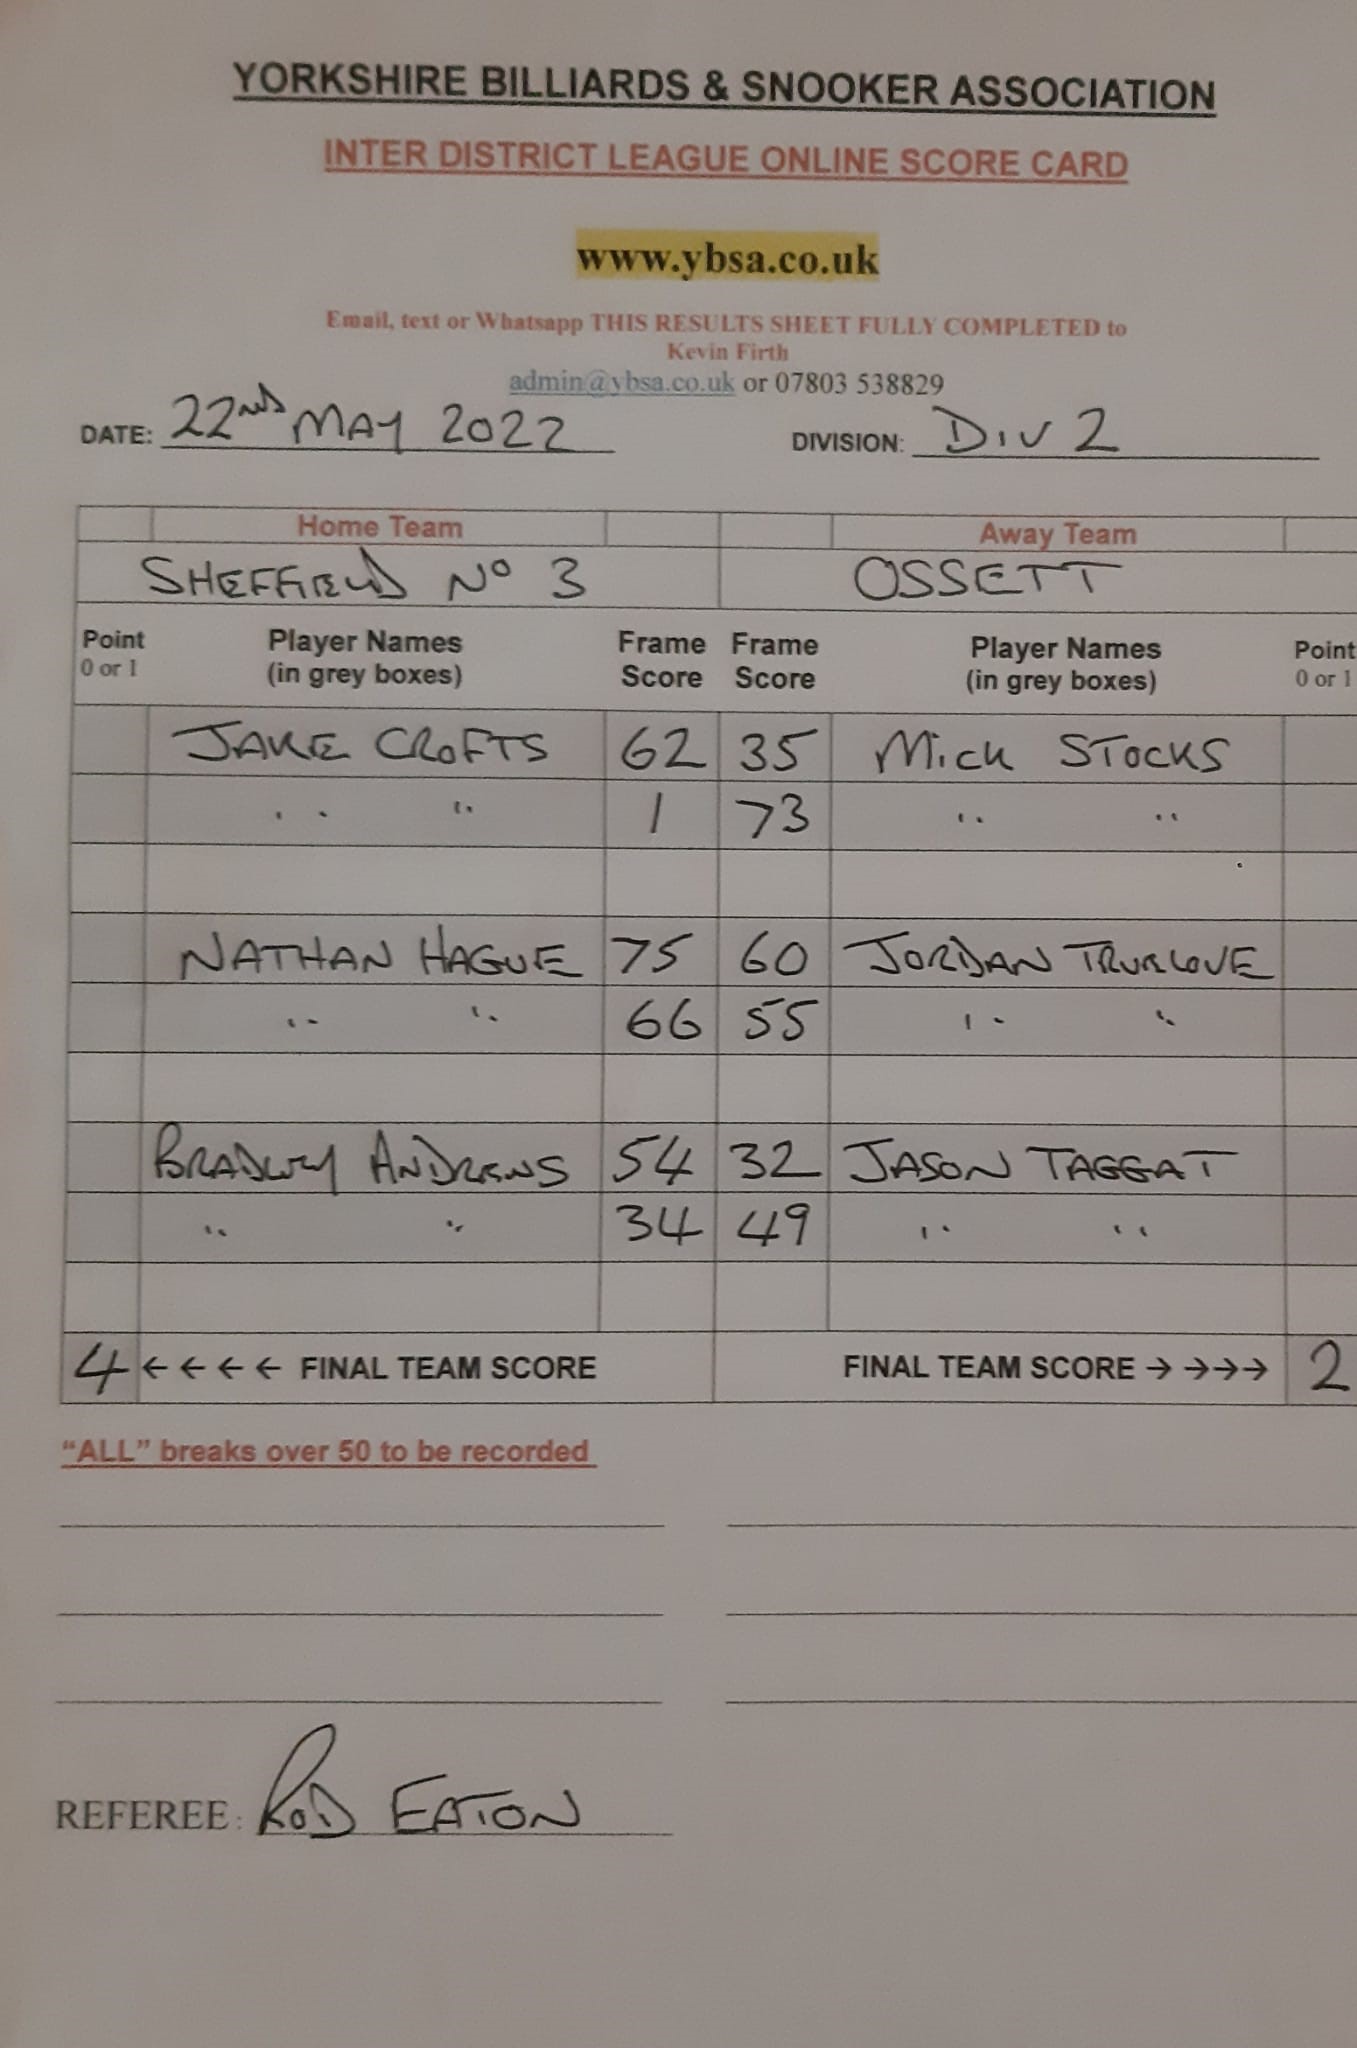 YORKSHIRE BILLIARDS & SNOOKER ASSOCIATION
INTER DISTRICT LEAGUE ONLINE SCORE CARD
www.ybsa.co.uk
Email, text or Whatsapp THIS RESULTS SHEET FULLY COMPLETED to
Kevin Firth
admin@ybsa.co.uk or 07803 538829
DATE: 22ND MAY 2022 DIVISION: DIV 2
Home Team Away Team
SHEFFIELD No 3 OSSETT
Point Player Names Frame Frame Player Names Point
0 or 1 (in grey boxes) Score Score (in grey boxes) 0 or 1
JAKE CROFTS 62 35 MICK STOCKS
" " 1 73 " "
NATHAN HAGUE 75 60 JORDAN TRUELOVE
" " 66 55 " "
BRADLEY ANDREWS 54 32 JASON TAGGAT
" " 34 49 " "
4 ← ← ← ← FINAL TEAM SCORE FINAL TEAM SCORE → →→→ 2
"ALL" breaks over 50 to be recorded
REFEREE: ROD EATON